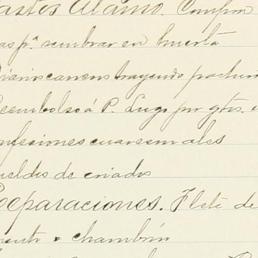 Gastos Alamo. Compra
as pª sembrar en huerta
carros trayendo
Reembolso á P. Lugo por gtos.
onfesiones cuaresmales
ueldos de criados
Reparaciones. Flete de
chambrín